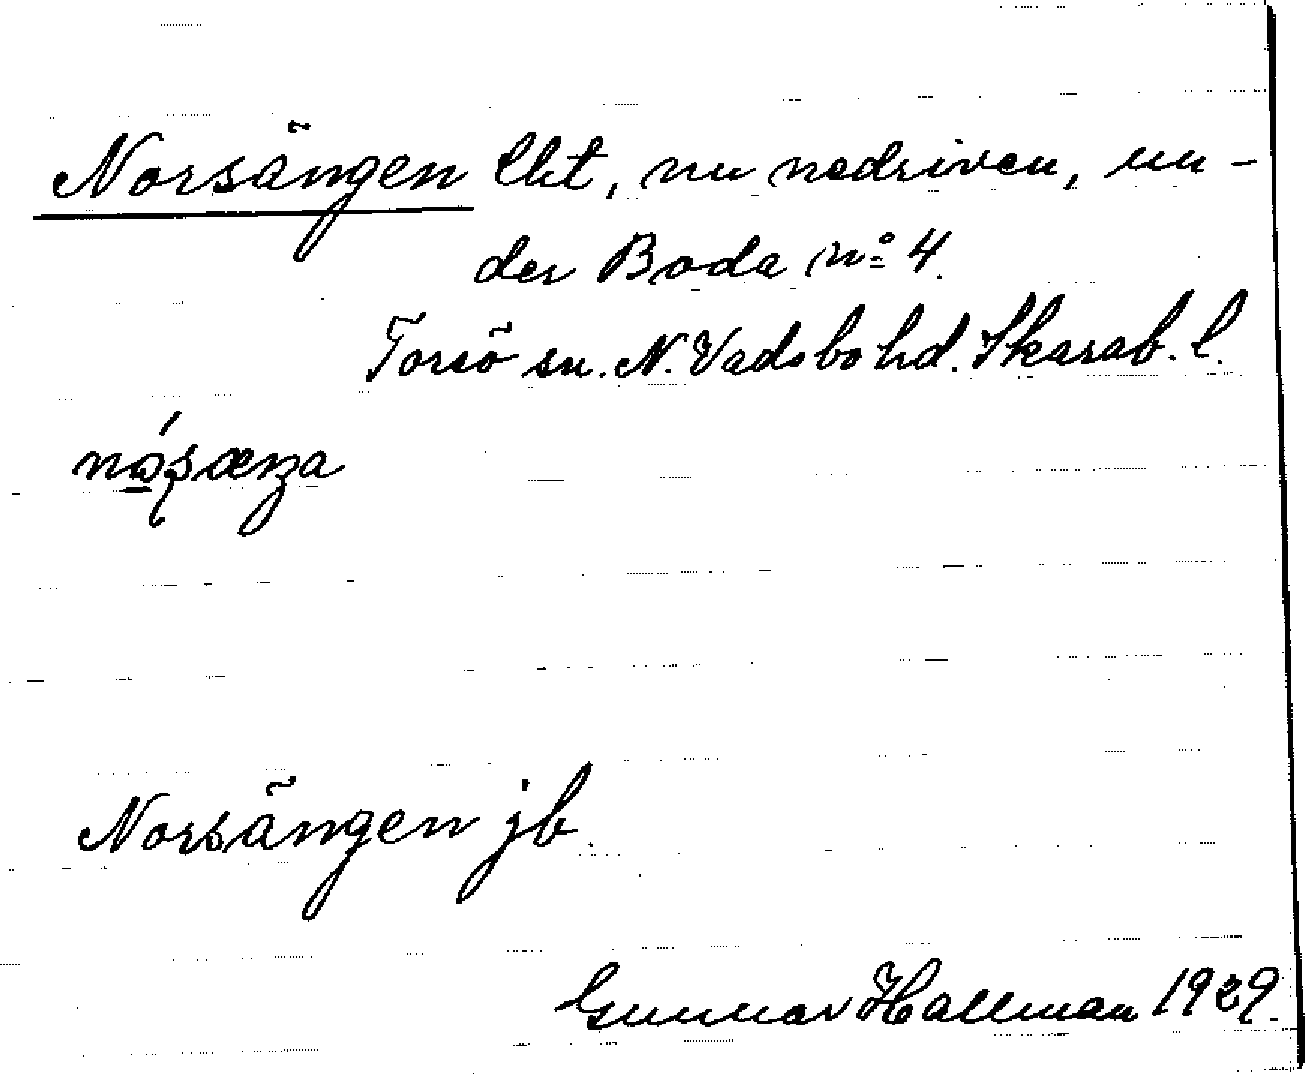 Norsängen lht, nu nedriven, un-
der Boda nº 4.
Torsö sn. N. Vadsbo hd. Skarab. l.
Norsängen jb.
Gunnar Hallman 1929.